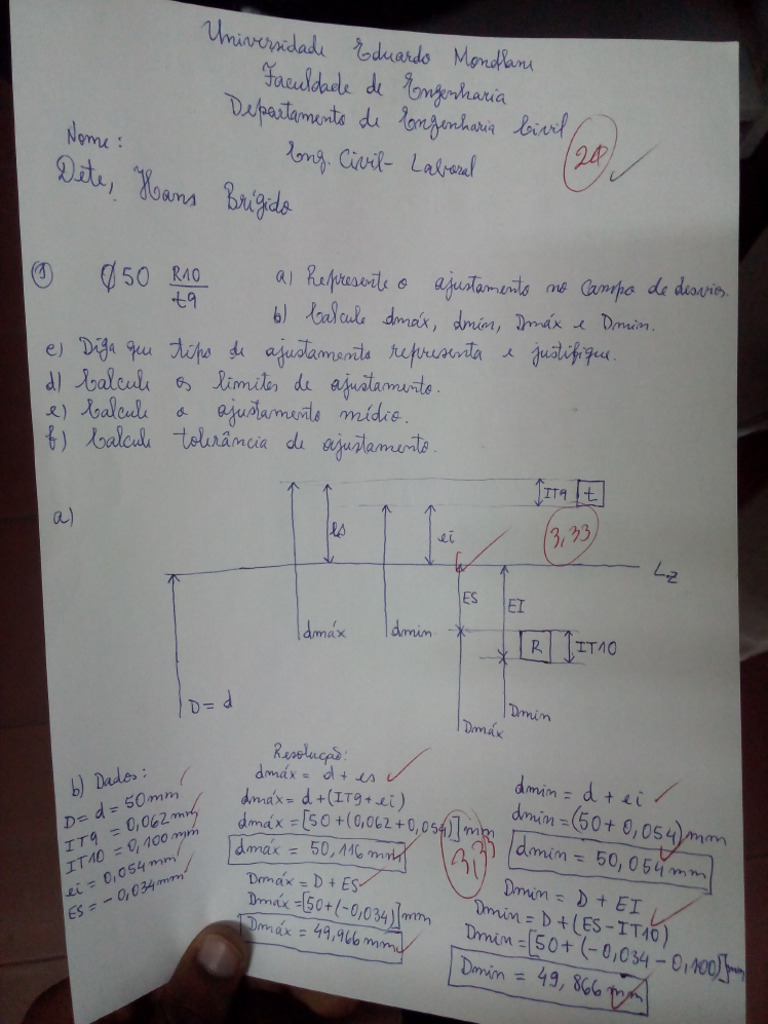 Universidade Eduardo Mondlane
Faculdade de Engenharia
Departamento de Engenharia Civil
Eng. Civil - Laboral
Nome:
Dete, Hans Brígido
20
1) Ø50 R10/t9
a) Represente o ajustamento no campo de desvios.
b) Calcule dmáx, dmín, Dmáx e Dmin.
c) Diga que tipo de ajustamento representa e justifique.
d) Calcule os limites de ajustamento.
e) Calcule o ajustamento médio.
f) Calcule tolerância de ajustamento.
a)
IT9 t
es
ei
3,33
Lz
ES
EI
dmáx
dmin
R IT10
D = d
Dmáx
Dmin
b) Dados:
D = d = 50mm
IT9 = 0,062 mm
IT10 = 0,100 mm
ei = 0,054 mm
ES = - 0,034 mm
Resolução:
dmáx = d + es
dmáx = d + (IT9 + ei)
dmáx = [50 + (0,062 + 0,054)] mm
dmáx = 50,116 mm
3,33
Dmáx = D + ES
Dmáx = [50 + (-0,034)] mm
Dmáx = 49,966 mm
dmin = d + ei
dmin = (50 + 0,054) mm
dmin = 50,054 mm
Dmin = D + EI
Dmin = D + (ES - IT10)
Dmin = [50 + (-0,034 - 0,100)] mm
Dmin = 49,866 mm